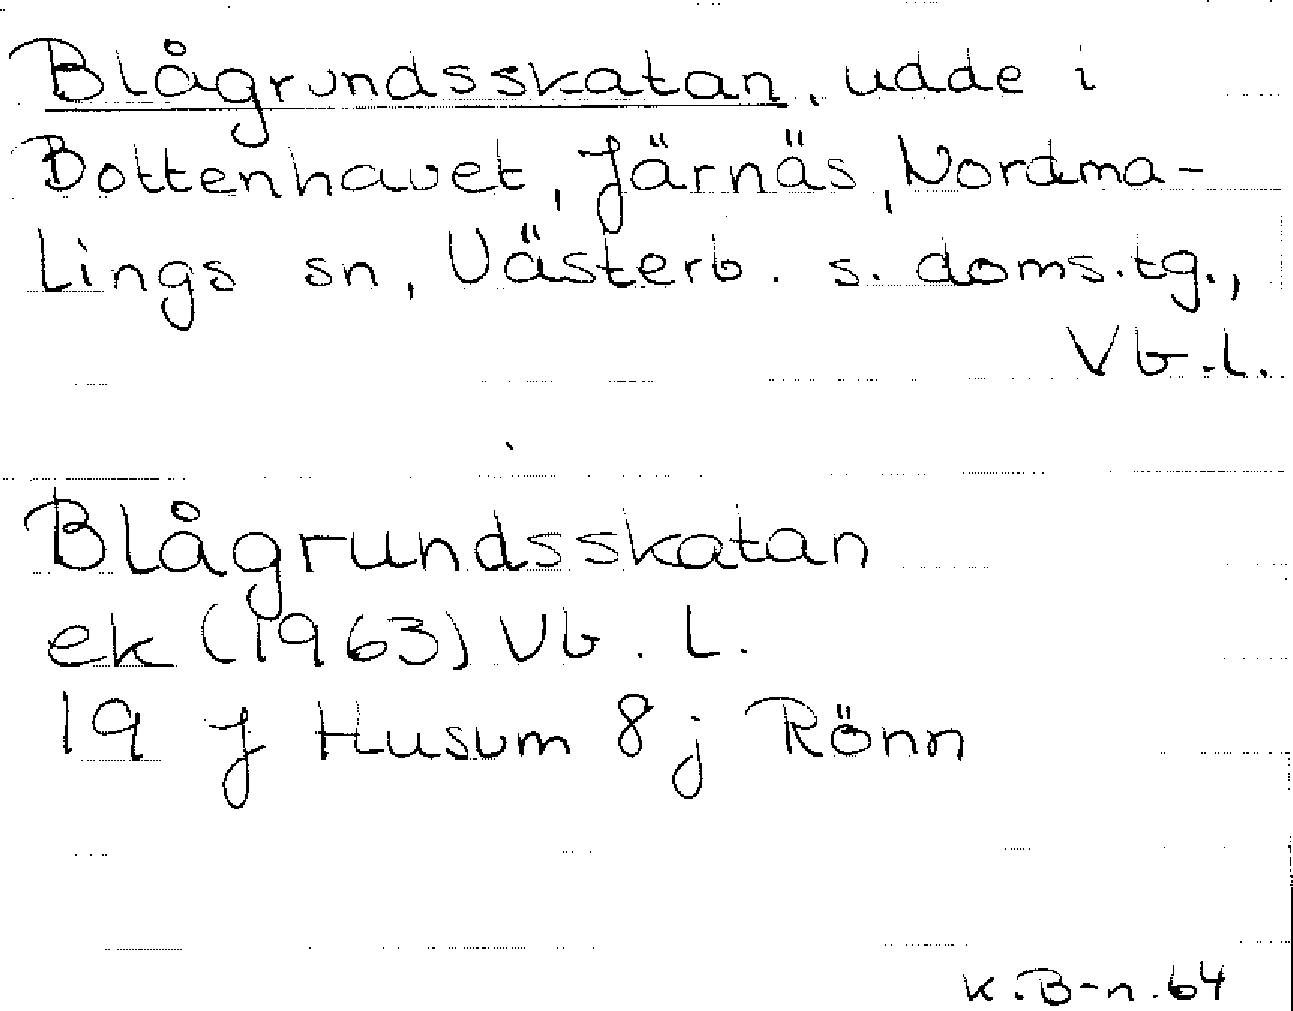 Blågrundsskatan, udde i
Bottenhavet, Järnäs, Nordma-
lings sn, Västerb. s. doms.tg.,
Vb.l.
Blågrundsskatan
ek (1963) Vb. l.
19 J Husum 8 j Rönn
K.B-n.64